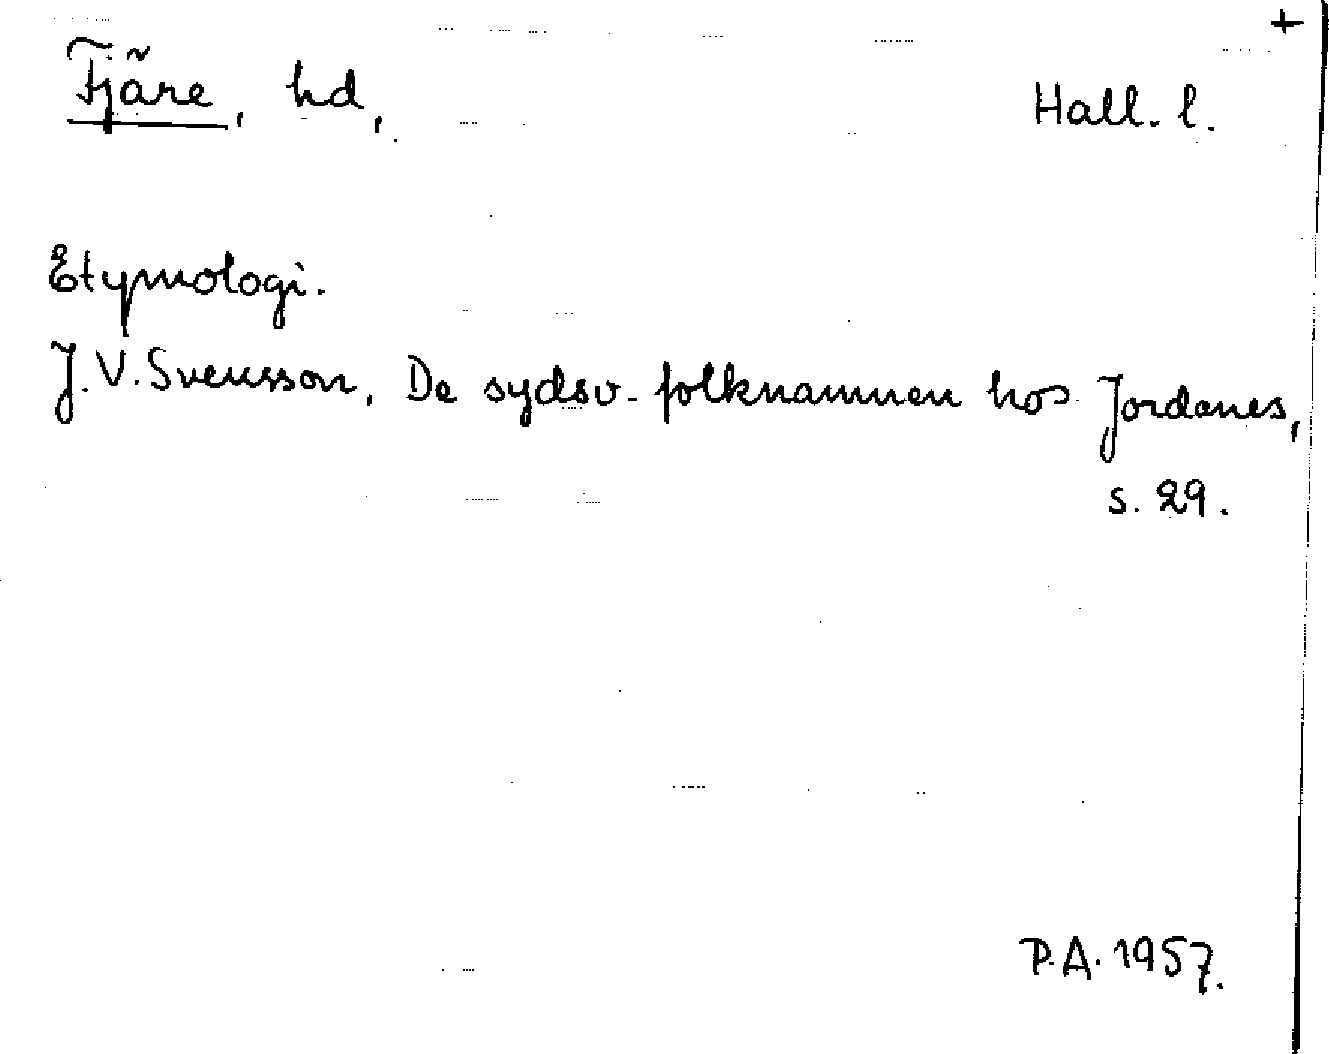 +
Fjäre, hd, Hall. l.
Etymologi.
J. V. Svensson, De sydsv. folknamnen hos Jordanes,
s. 29.
P. A. 1957.